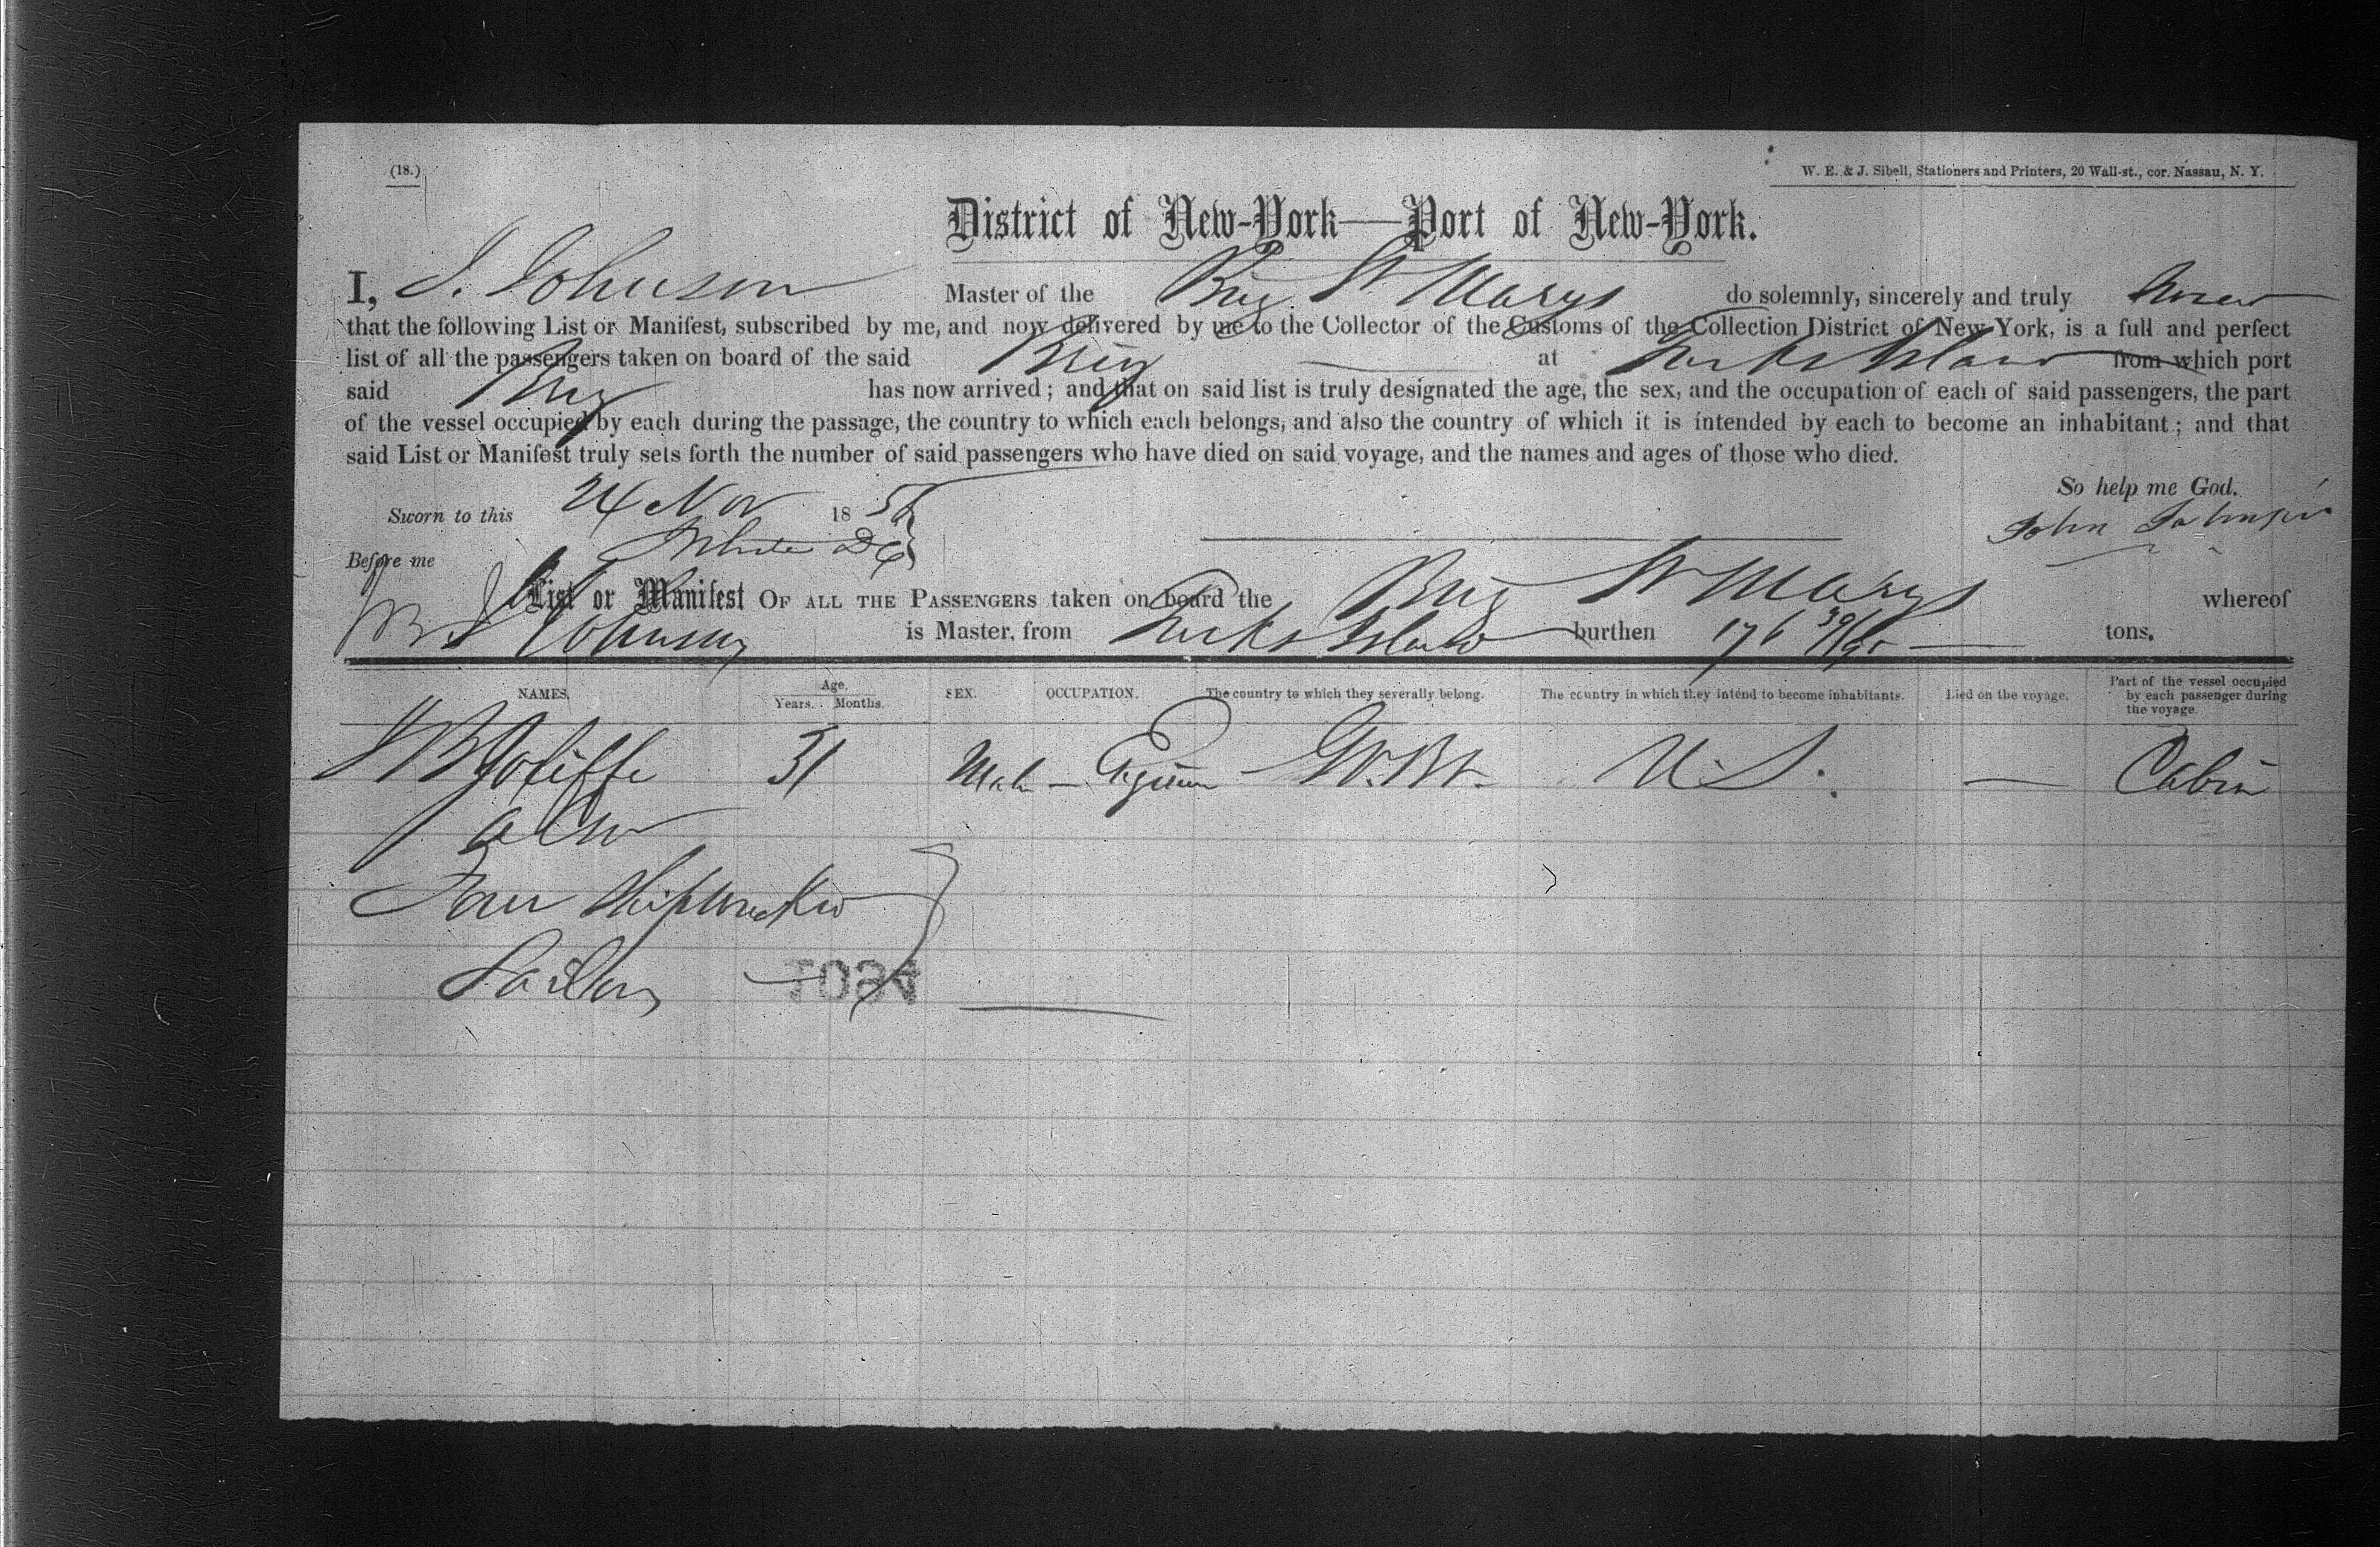 (18.)
W. E. & J. Sibell, Stationers and Printers, 20 Wall-st., cor. Nassau, N. Y.
District of New-York—Port of New-York.
I, J. Johnson Master of the Brig St Marys do solemnly, sincerely and truly swear
that the following List or Manifest, subscribed by me, and now delivered by me to the Collector of the Customs of the Collection District of New York, is a full and perfect
list of all the passengers taken on board of the said Brig at Turks Island from which port
said Brig has now arrived; and that on said list is truly designated the age, the sex, and the occupation of each of said passengers, the part
of the vessel occupied by each during the passage, the country to which each belongs, and also the country of which it is intended by each to become an inhabitant; and that
said List or Manifest truly sets forth the number of said passengers who have died on said voyage, and the names and ages of those who died.
So help me God.
Sworn to this 24 Nov 185
John Johnson
Before me White DC
List or Manifest OF ALL THE PASSENGERS taken on board the Brig St Marys whereof
Johnson is Master, from Turks Island burthen 176 39/95 tons.
NAMES. Age. Years. Months. SEX. OCCUPATION. The country to which they severally belong. The country in which they intend to become inhabitants. Died on the voyage. Part of the vessel occupied by each passenger during the voyage.
J B Joliffe 31 Male Gr. Bt. U.S. — Cabin
also
Four Shipwrecked
Sailors